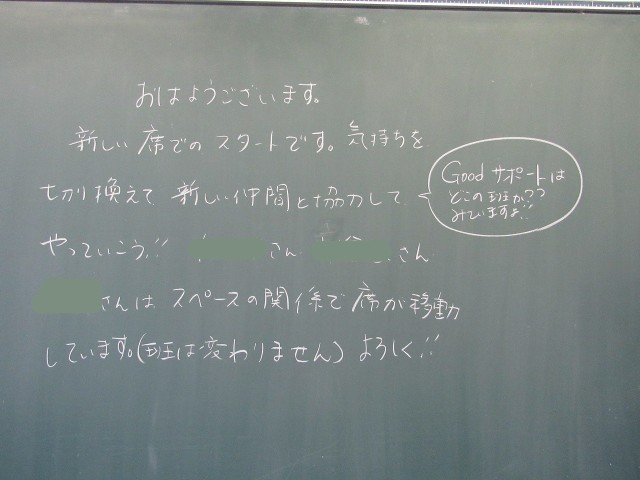 おはようございます。
新しい席でのスタートです。気持ちを
切り換えて新しい仲間と協力して
やっていこう!! さん さん
さんはスペースの関係で席が移動
しています。(班は変わりません) よろしく!!
Goodサポートは
どこの班か??
みていますよ!!